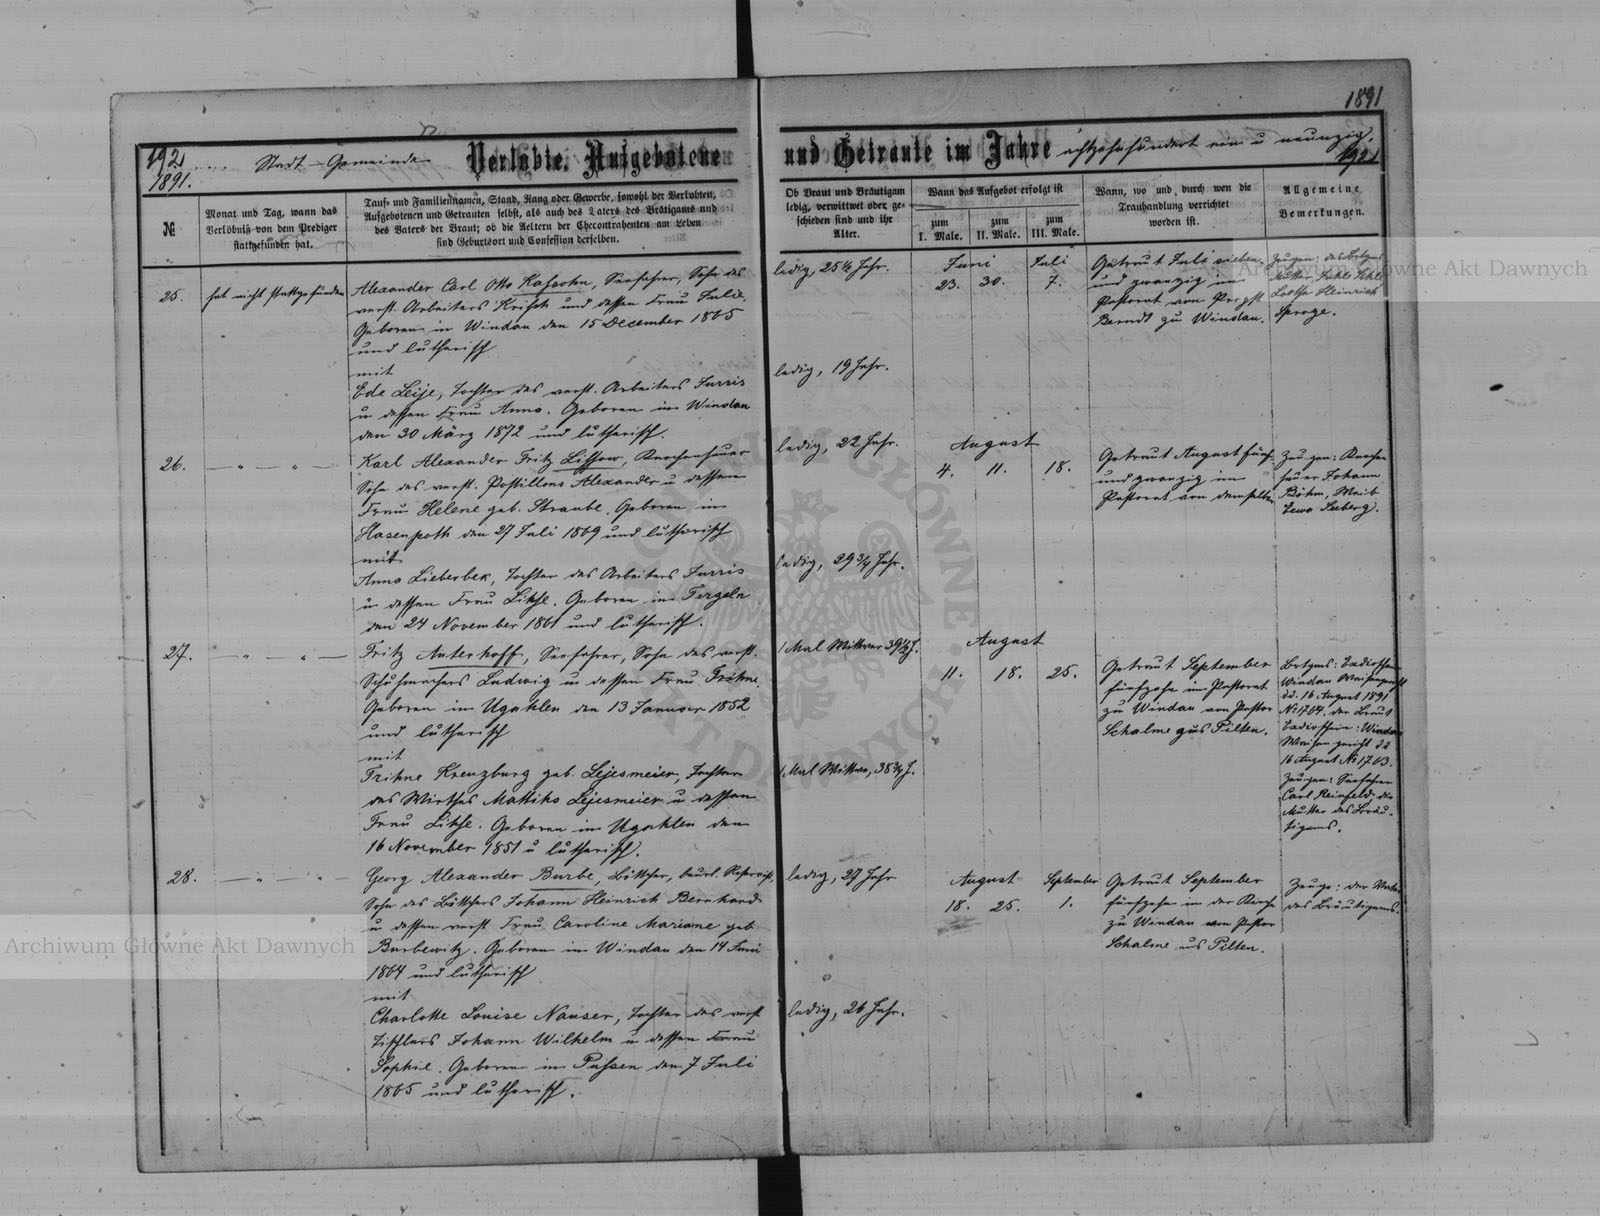 1891
192
1891.
Stadt-Gemeinde
Verlobte, Aufgebotene
und Getraute im Jahre achtzehnhundert ein u neunzig.
192
№
Monat und Tag, wann das
Verlöbniß von dem Prediger
stattgefunden hat.
Tauf- und Familiennamen, Stand, Rang oder Gewerbe, sowohl der Verlobten,
Aufgebotenen und Getrauten selbst, als auch des Vaters des Bräutigams und
des Vaters der Braut; ob die Aeltern der Ehecontrahenten am Leben
sind Geburtsort und Confession derselben.
Ob Braut und Bräutigam
ledig, verwittwet oder ge-
schieden sind und ihr
Alter.
Wann das Aufgebot erfolgt ist
zum
I. Male.
zum
II. Male.
zum
III. Male.
Wann, wo und durch wen die
Trauhandlung verrichtet
worden ist.
Allgemeine
Bemerkungen.
25.
hat nicht stattgefunden
Alexander Carl Otto Kahsohn, Seefahrer, Sohn des
verst. Arbeiters Krisch und dessen Frau Julie.
Geboren in Windau den 15 December 1865
und lutherisch
mit
Ede Leije, Tochter des verst. Arbeiters Jurris
u dessen Frau Anna. Geboren in Windau
den 30 März 1872 und lutherisch.
ledig, 25½ Jahr.
ledig, 19 Jahr.
Juni
Juli
23. 30. 7.
Getraut Juli sieben
und zwanzig im
Pastorat von Propst
Berndt zu Windau.
Zeugen: des Brtgms
Mutter,
Lootse Heinrich
Sproge.
26.
— " — " —
Karl Alexander Fritz Lissow, Knochenhauer
Sohn des verst. Postillons Alexander u dessen
Frau Helene geb. Straube. Geboren in
Hasenpoth den 27 Juli 1869 und lutherisch
mit
Anna Lieberbek, Tochter des Arbeiters Jurris
u dessen Frau Lihse. Geboren in Tergeln
den 24 November 1861 und lutherisch.
ledig, 22 Jahr.
ledig, 29¾ Jahr.
August
4. 11. 18.
Getraut August fünf
und zwanzig im
Pastorat von demselben
Zeugen: Knochen
hauer Johann
Böhm, Weib
Lewa Seeberg.
27.
— " — " —
Fritz Anterhoff, Seefahrer, Sohn des verst.
Schuhmachers Ludwig u dessen Frau Trihne.
Geboren in Ugahlen den 13 Januar 1852
und lutherisch
mit
Trihne Kreuzburg geb. Lejesmeier, Tochter
des Wirthes Mattihs Lejesmeier u dessen
Frau Lihse. Geboren in Ugahlen den
16 November 1851 u lutherisch.
1 Mal Wittwer 39½ J.
1 Mal Wittwe, 38¾ J.
August
11. 18. 25.
Getraut September
fünfzehn im Pastorat
zu Windau von Pastor
Schalme aus Pilten.
Brtgms:
Windau Waisengericht
dd. 16 August 1891
№ 1764. der Braut
Windau
Waisengericht dd
16 August № 1763.
Zeugen: Seefahrer
Carl Reinfeld die
Mutter des Bräu-
tigams.
28.
— " — " —
Georg Alexander Burbe, Böttcher, beurl. Reservist,
Sohn des Böttchers Johann Heinrich Bernhard
u dessen verst Frau Caroline Mariane geb
Burbewitz. Geboren in Windau den 14 Juni
1864 und lutherisch
mit
Charlotte Louise Nauser, Tochter des verst
Tischlers Johann Wilhelm u dessen Frau
Sophie. Geboren in Puhsen den 7 Juli
1865 und lutherisch.
ledig, 27 Jahr
ledig, 26 Jahr.
August
September
18. 25. 1.
Getraut September
fünfzehn in der Kirche
zu Windau von Pastor
Schalme aus Pilten.
Zeuge: der Vater
des Bräutigams.
Archiwum Główne Akt Dawnych
Archiwum Główne Akt Dawnych